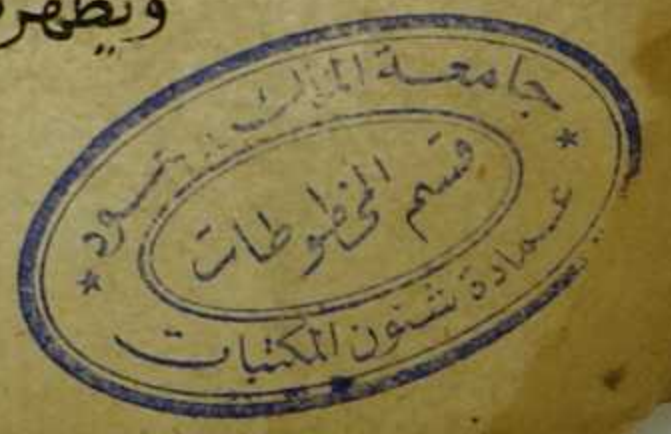 ويطهر
جامعة الملك سعود
قسم المخطوطات
عمادة شئون المكتبات